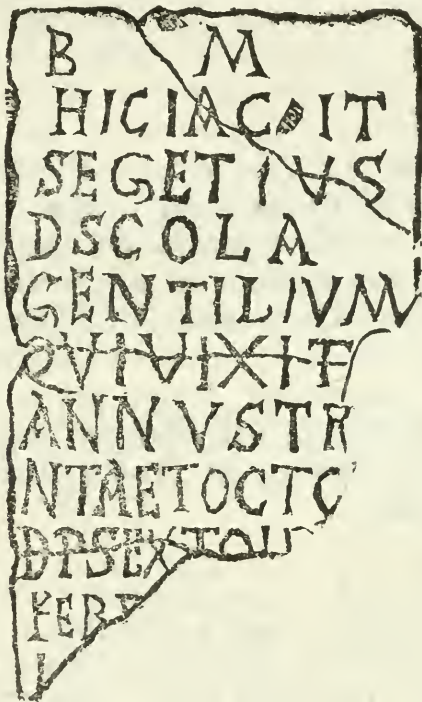 B M
HICIAC IT
SEGETIVS
DSCOLA
GENTILIVM
QVIVIXIT
ANNVSTR
NTAETOCTO
DPSEXTO
FEB